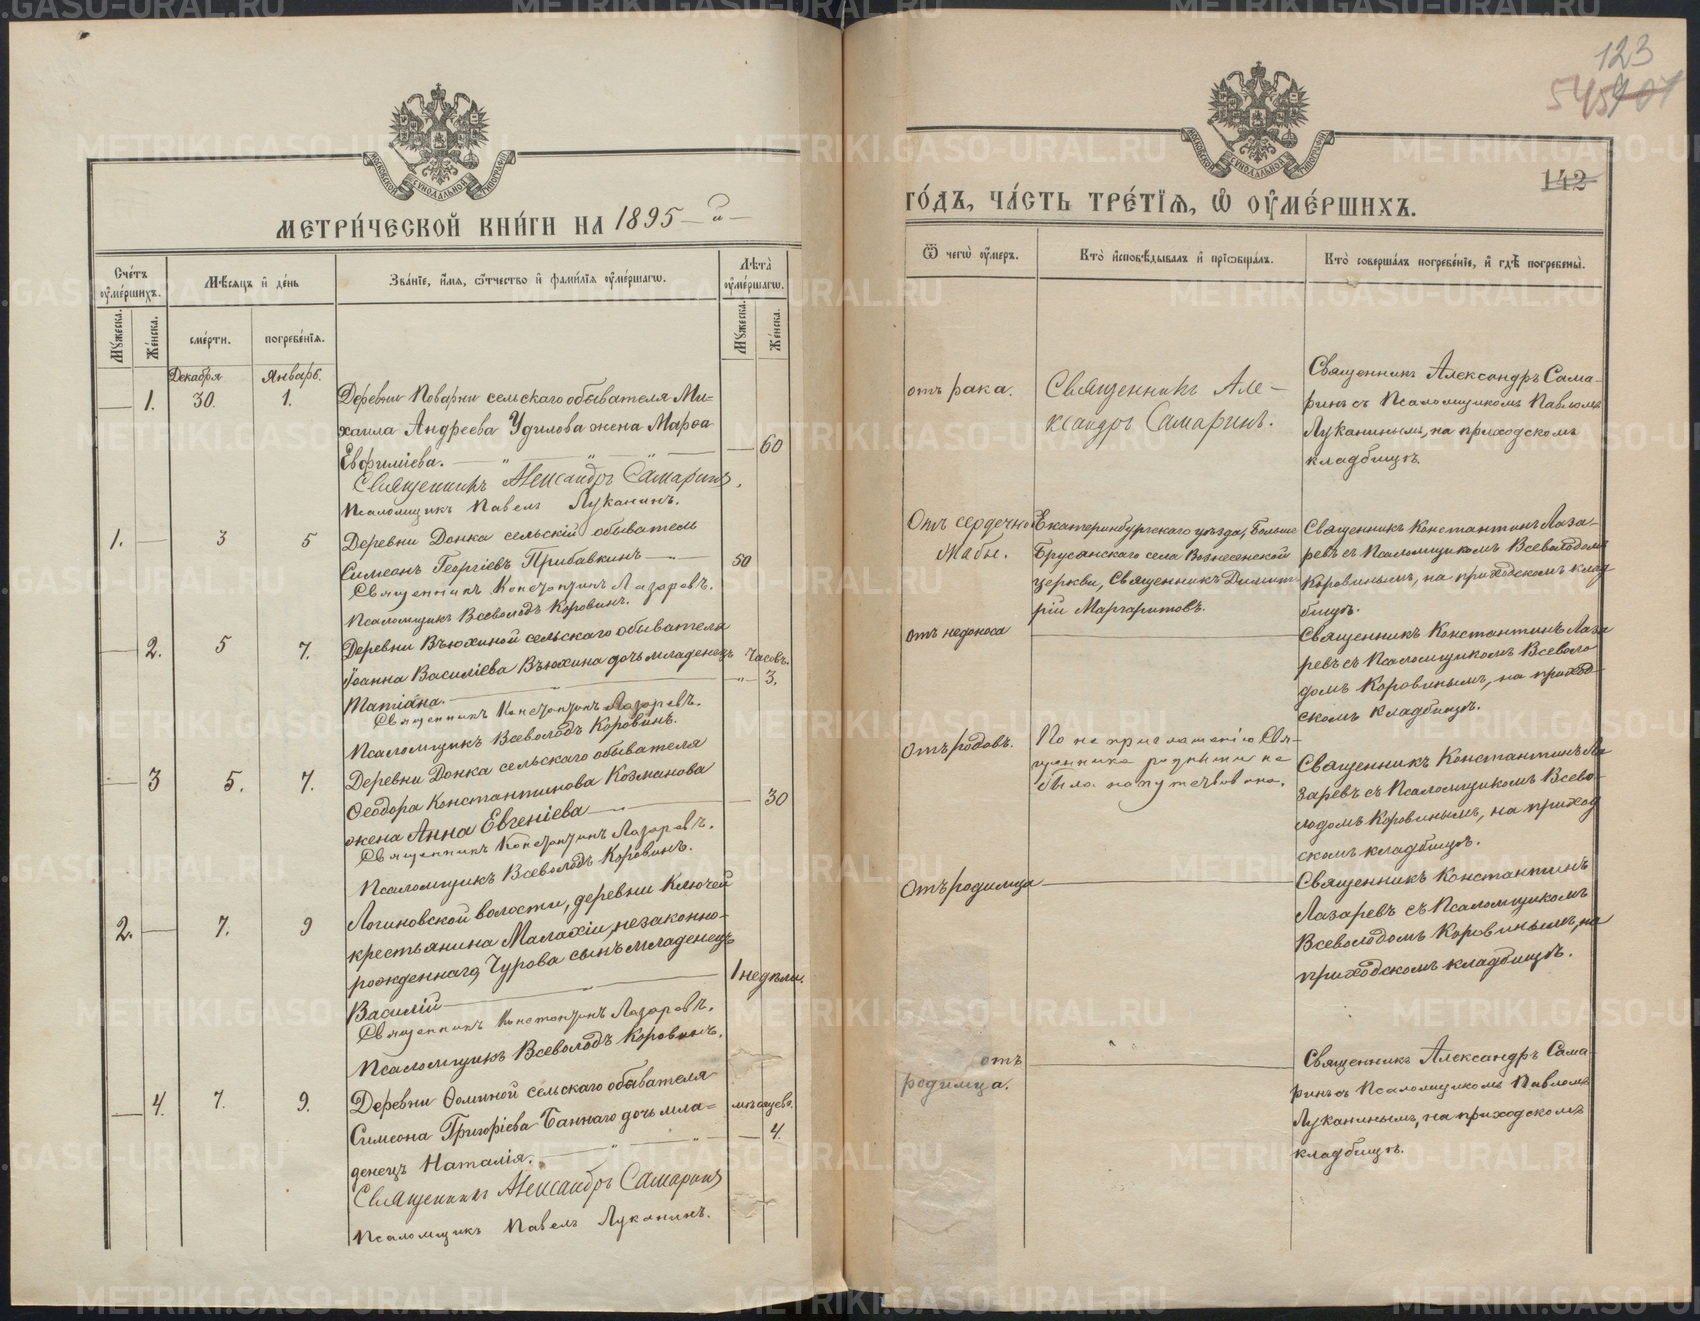 123
545
701
142
МОСКОВСКОЙ СУНОДАЛЬНОЙ ТИПОГРАФІИ
МЕТРИ́ЧЕСКОЙ КНИ́ГИ НА 1895 – й –
Сче́тъ ᲂу҆ме́ршихъ.
Мѣ́сяцъ и҆ де́нь
Зва́нїе, и҆́мя, ѻ҆́тчество и҆ фами́лїя ᲂу҆ме́ршагѡ.
Лѣта̀ ᲂу҆ме́ршагѡ.
Му́жеска.
Же́нска.
сме́рти.
погребе́нїя.
Му́жеска.
Же́нска.
Декабря
Январь.
— 1. 30. 1. Деревни Поварни сельскаго обывателя Ми=
хаила Андреева Удилова жена Марѳа
Евфиміева. — 60
Священникъ Александръ Самаринъ.
Псаломщикъ Павелъ Луканинъ.
1. — 3 5 Деревни Донка сельскій обыватель
Симеонъ Георгіевъ Прибавкинъ — 50
Священникъ Константинъ Лазаревъ.
Псаломщикъ Всеволодъ Коровинъ.
— 2. 5 7. Деревни Вьюхиной сельскаго обывателя
Іоанна Василіева Вьюхина дочь младенецъ Часовъ.
Татіана. — 3.
Священникъ Константинъ Лазаревъ.
Псаломщикъ Всеволодъ Коровинъ.
— 3 5. 7. Деревни Донка сельскаго обывателя
Ѳеодора Константинова Козманова
жена Анна Евгеніева — 30
Священникъ Константинъ Лазаревъ.
Псаломщикъ Всеволодъ Коровинъ.
2. — 7. 9 Логиновской волости, деревни Ключей
крестьянина Малахіи, незаконно-
рожденнаго, Чурова сынъ младенецъ
Василій — 1 недѣли.
Священникъ Константинъ Лазаревъ.
Псаломщикъ Всеволодъ Коровинъ.
— 4. 7. 9. Деревни Ѳоминой сельскаго обывателя
Симеона Григоріева Баннаго дочь мла= мѣсяцевъ.
денецъ Наталія. — 4.
Священникъ Александръ Самаринъ
Псаломщикъ Павелъ Луканинъ.
МОСКОВСКОЙ СУНОДАЛЬНОЙ ТИПОГРАФІИ
ГО́ДЪ, ЧА́СТЬ ТРЕ́ТЇЯ, Ѡ҆ ОУ҆МЕ́РШИХЪ.
Ѿ чегѡ̀ ᲂу҆́меръ.
Кто̀ и҆сповѣ́дывалъ и҆ прїѡбща́лъ.
Кто̀ соверша́лъ погребе́нїе, и҆ гдѣ̀ погребены̀.
отъ рака.
Священникъ Але-
ксандръ Самаринъ.
Священникъ Александръ Сама-
ринъ съ Псаломщикомъ Павломъ
Луканинымъ, на приходскомъ
кладбищѣ.
Отъ сердечно
Екатеринбургскаго уѣзда, Больше
Брусянскаго села Вознесенской
церкви, Священникъ Димит-
рій Маргаритовъ.
Священникъ Константинъ Лаза-
ревъ съ Псаломщикомъ Всеволодомъ
Коровинымъ, на приходскомъ клад
бищѣ.
отъ недоноса
Священникъ Константинъ Лаза
ревъ съ Псаломщикомъ Всеволо
домъ Коровинымъ, на приход-
скомъ кладбищѣ.
Отъ родовъ.
По не приглашенію Свя-
щенника родными не
была напутствована.
Священникъ Константинъ Ла
заревъ съ Псаломщикомъ Всево-
лодомъ Коровинымъ, на приход
скомъ кладбищѣ.
Отъ родимца
Священникъ Константинъ
Лазаревъ съ Псаломщикомъ
Всеволодомъ Коровинымъ, на
приходскомъ кладбищѣ.
отъ
родимца.
Священникъ Александръ Сама-
ринъ съ Псаломщикомъ Павломъ
Луканинымъ, на приходскомъ
кладбищѣ.
METRIKI.GASO-URAL.RU